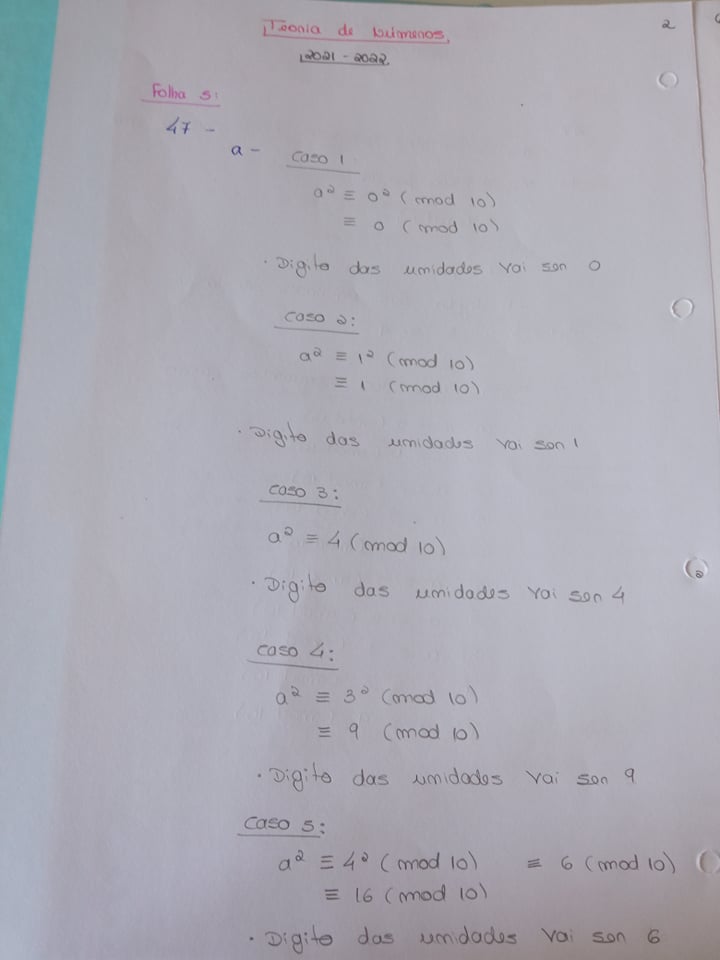 Teoria de Números
2
2021 - 2022
Folha 5:
47 -
a - Caso 1
a² ≡ 0² (mod 10)
≡ 0 (mod 10)
· Digito das unidades vai ser 0
Caso 2:
a² ≡ 1² (mod 10)
≡ 1 (mod 10)
· Digito das unidades vai ser 1
Caso 3:
a² ≡ 4 (mod 10)
· Digito das unidades vai ser 4
Caso 4:
a² ≡ 3² (mod 10)
≡ 9 (mod 10)
· Digito das unidades vai ser 9
Caso 5:
a² ≡ 4² (mod 10) ≡ 6 (mod 10)
≡ 16 (mod 10)
· Digito das unidades vai ser 6